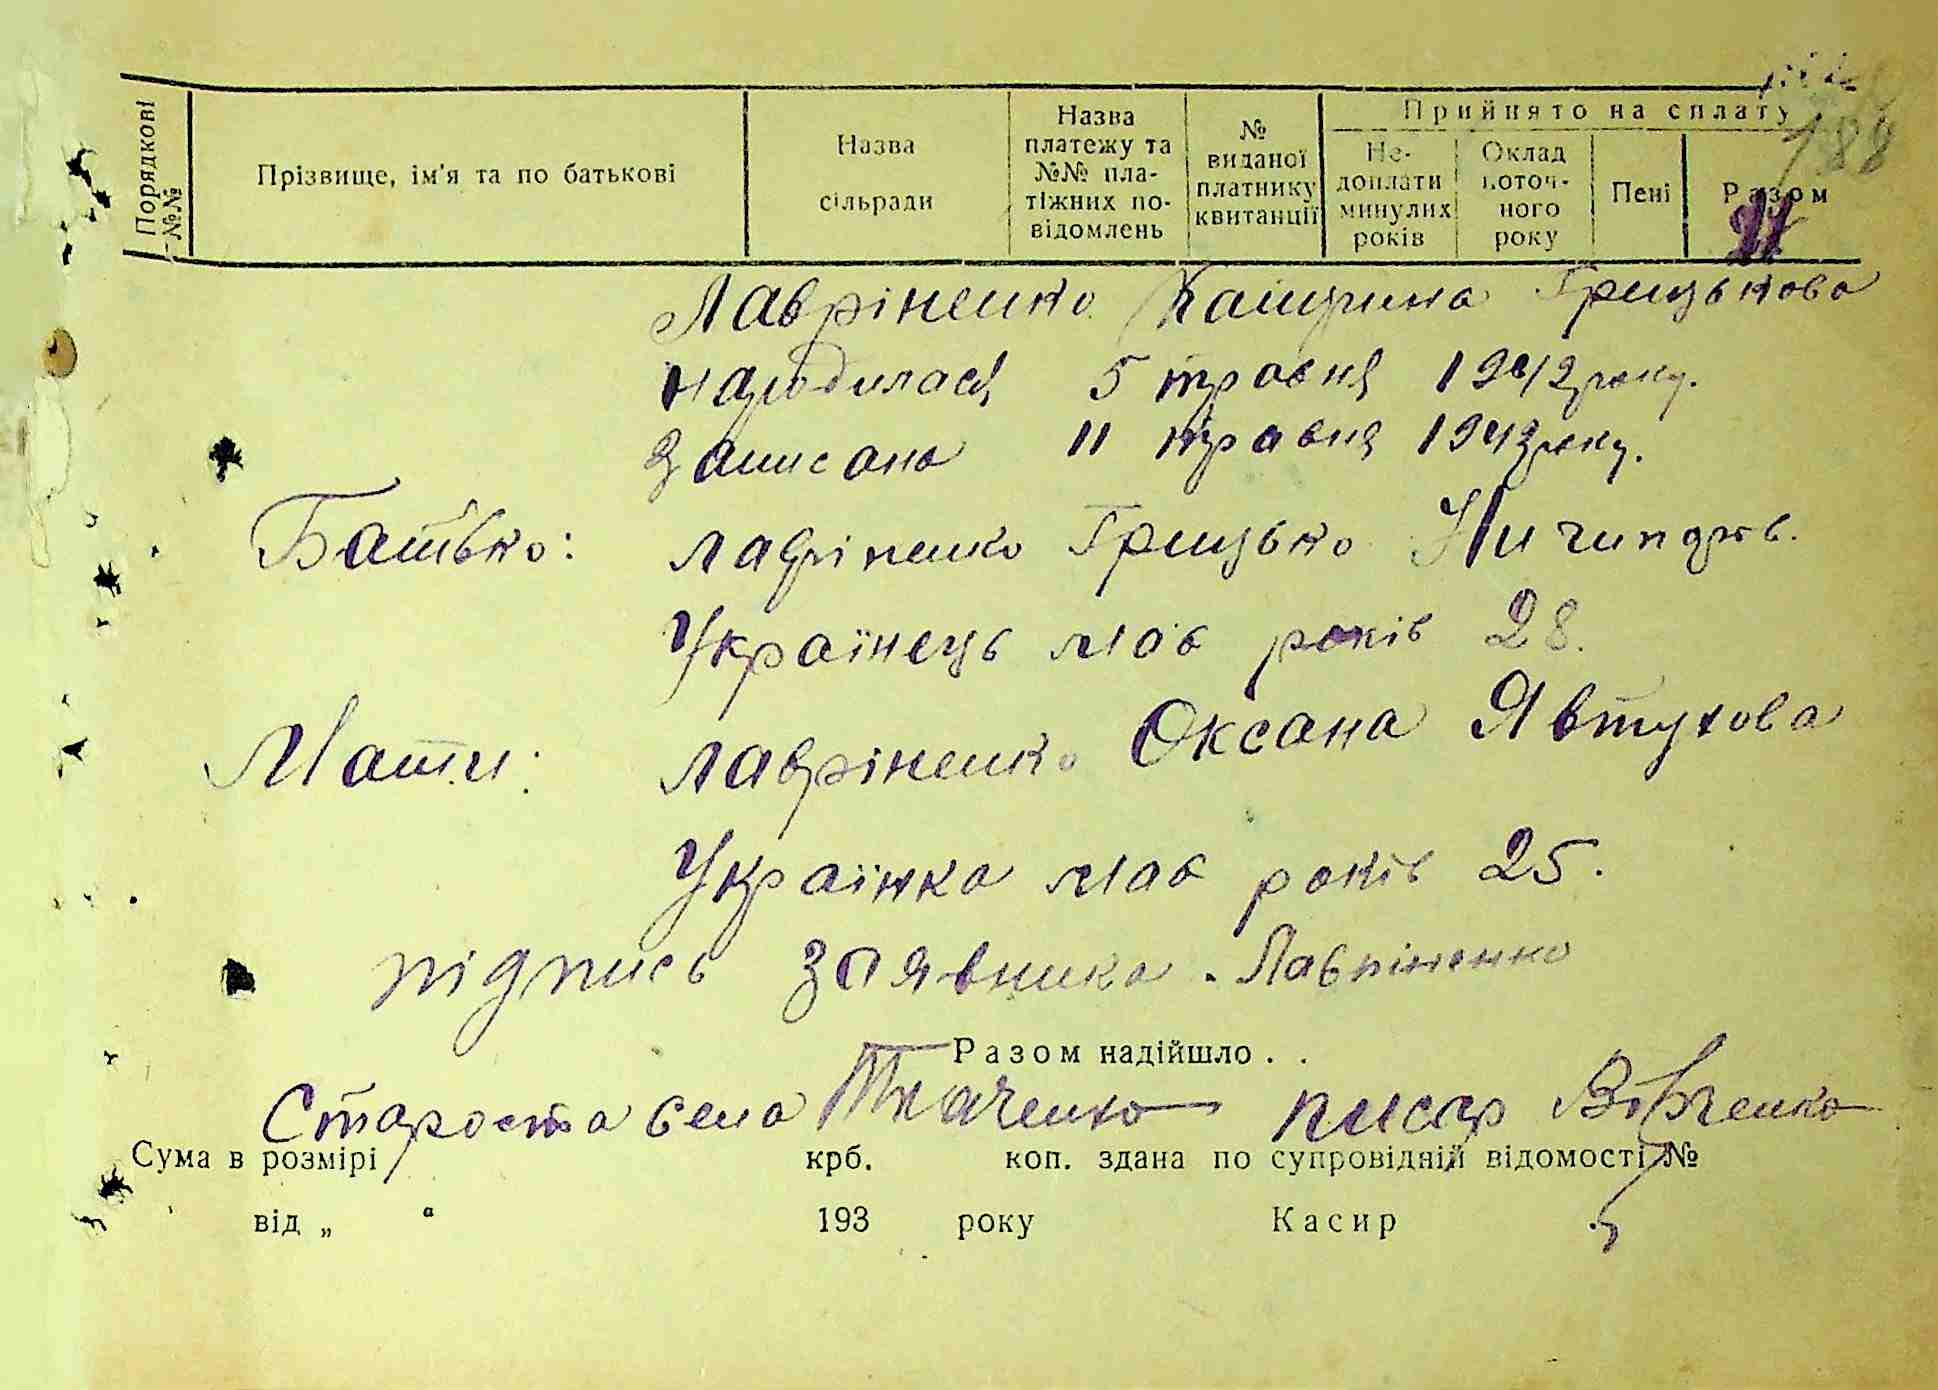 188
Порядкові №№
Прізвище, ім'я та по батькові
Назва сільради
Назва платежу та №№ платіжних повідомлень
№ виданої платнику квитанції
Прийнято на сплату
Недоплати минулих років
Оклад поточного року
Пені
Разом
Лавріненко Катерина Грицькова
народилася 5 травня 1942 року.
Записана 11 травня 1942 року.
Батько: Лавріненко Грицько Ничипоров.
Українець має років 28.
Мати: Лавріненко Оксана Явтухова
Українка має років 25.
підпись заявника. Лавріненко
Разом надійшло . .
Староста села Ткаченко писар Вовченко
Сума в розмірі крб. коп. здана по супровідній відомості №
від „ “ 193 року Касир